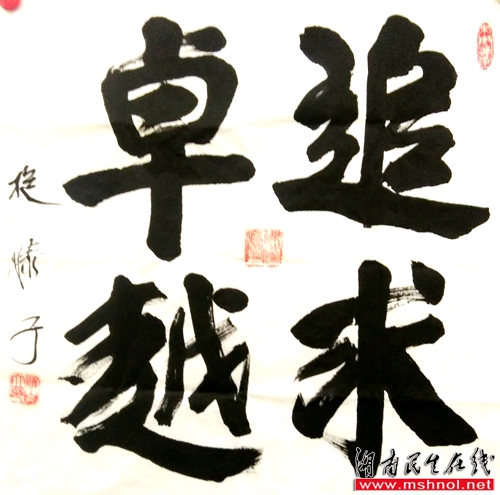 追求
卓越
湖南民生在线
www.mshnol.net